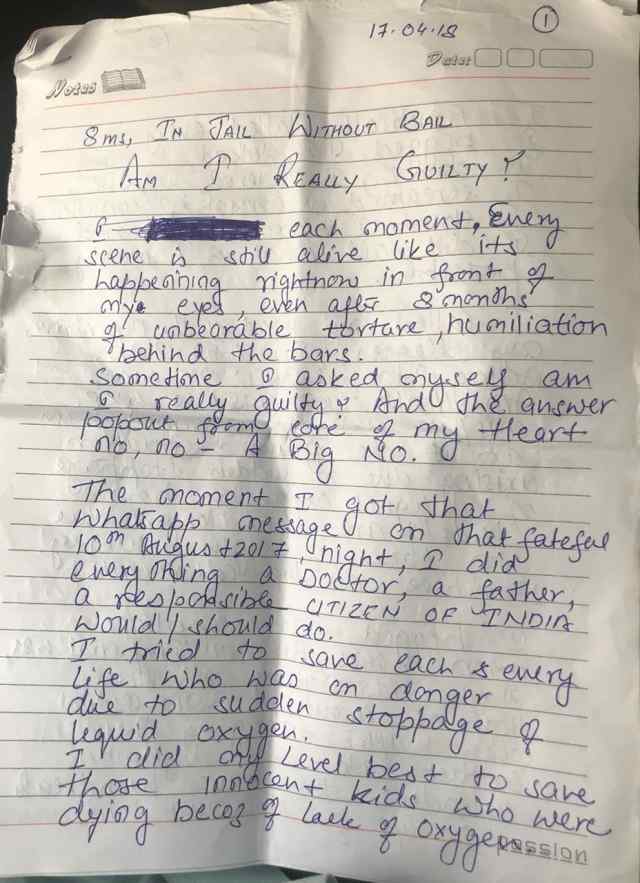 1
17.04.18
Notes
Date:
8 ms, IN JAIL WITHOUT BAIL
AM I REALLY GUILTY?
I each moment, Every
scene is still alive like its
happenning rightnow in front of
my eyes, even after 8 months
of unbearable torture, humiliation
behind the bars.
Sometime I asked myself am
I really guilty? And the answer
popout from core of my Heart
no, no - A Big NO.
The moment I got that
Whatsapp message on that fateful
10th August 2017 night, I did
everything a DOCTOR, a father,
a responsible CITIZEN OF INDIA
would/should do.
I tried to save each & every
life who was on danger
due to sudden stoppage of
liquid oxygen.
I did my level best to save
those innocent kids who were
dying becoz of lack of oxygen
passion